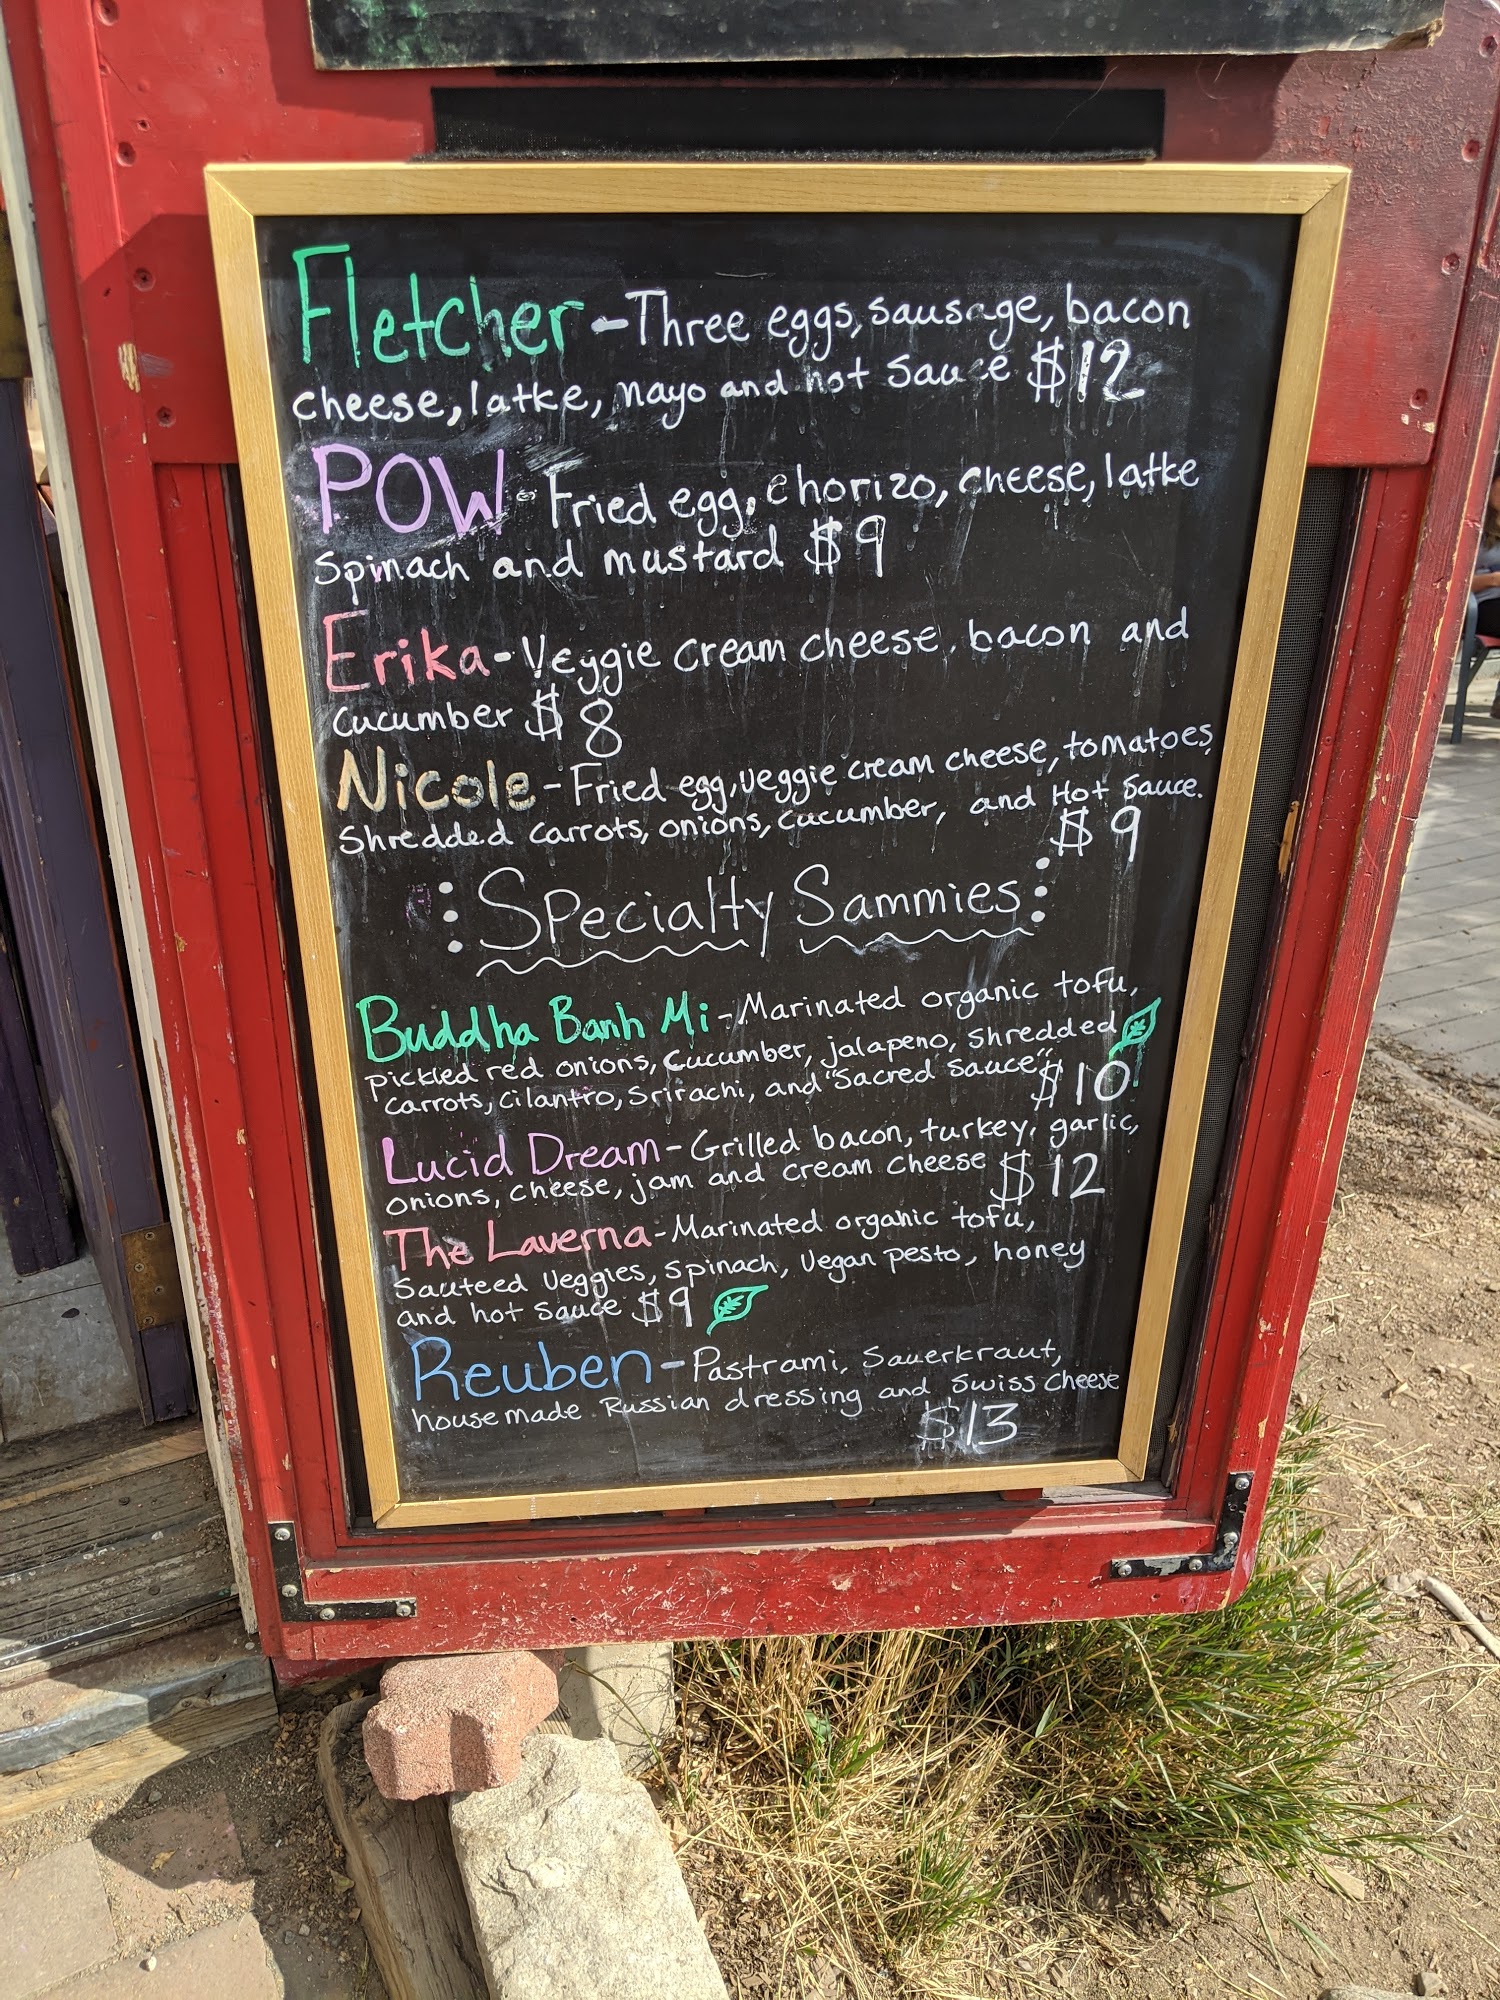 Fletcher - Three eggs, sausage, bacon
cheese, latke, mayo and hot sauce $12
POW - Fried egg, chorizo, cheese, latke
spinach and mustard $9
Erika - Veggie cream cheese, bacon and
cucumber $8
Nicole - Fried egg, veggie cream cheese, tomatoes,
Shredded carrots, onions, cucumber, and Hot Sauce.
$9
Specialty Sammies
Buddha Banh Mi - Marinated organic tofu,
pickled red onions, cucumber, jalapeno, shredded
carrots, cilantro, Srirachi, and "Sacred Sauce" $10
Lucid Dream - Grilled bacon, turkey, garlic,
onions, cheese, jam and cream cheese $12
The Laverna - Marinated organic tofu,
Sauteed Veggies, spinach, Vegan pesto, honey
and hot sauce $9
Reuben - Pastrami, Sauerkraut,
housemade Russian dressing and Swiss cheese
$13